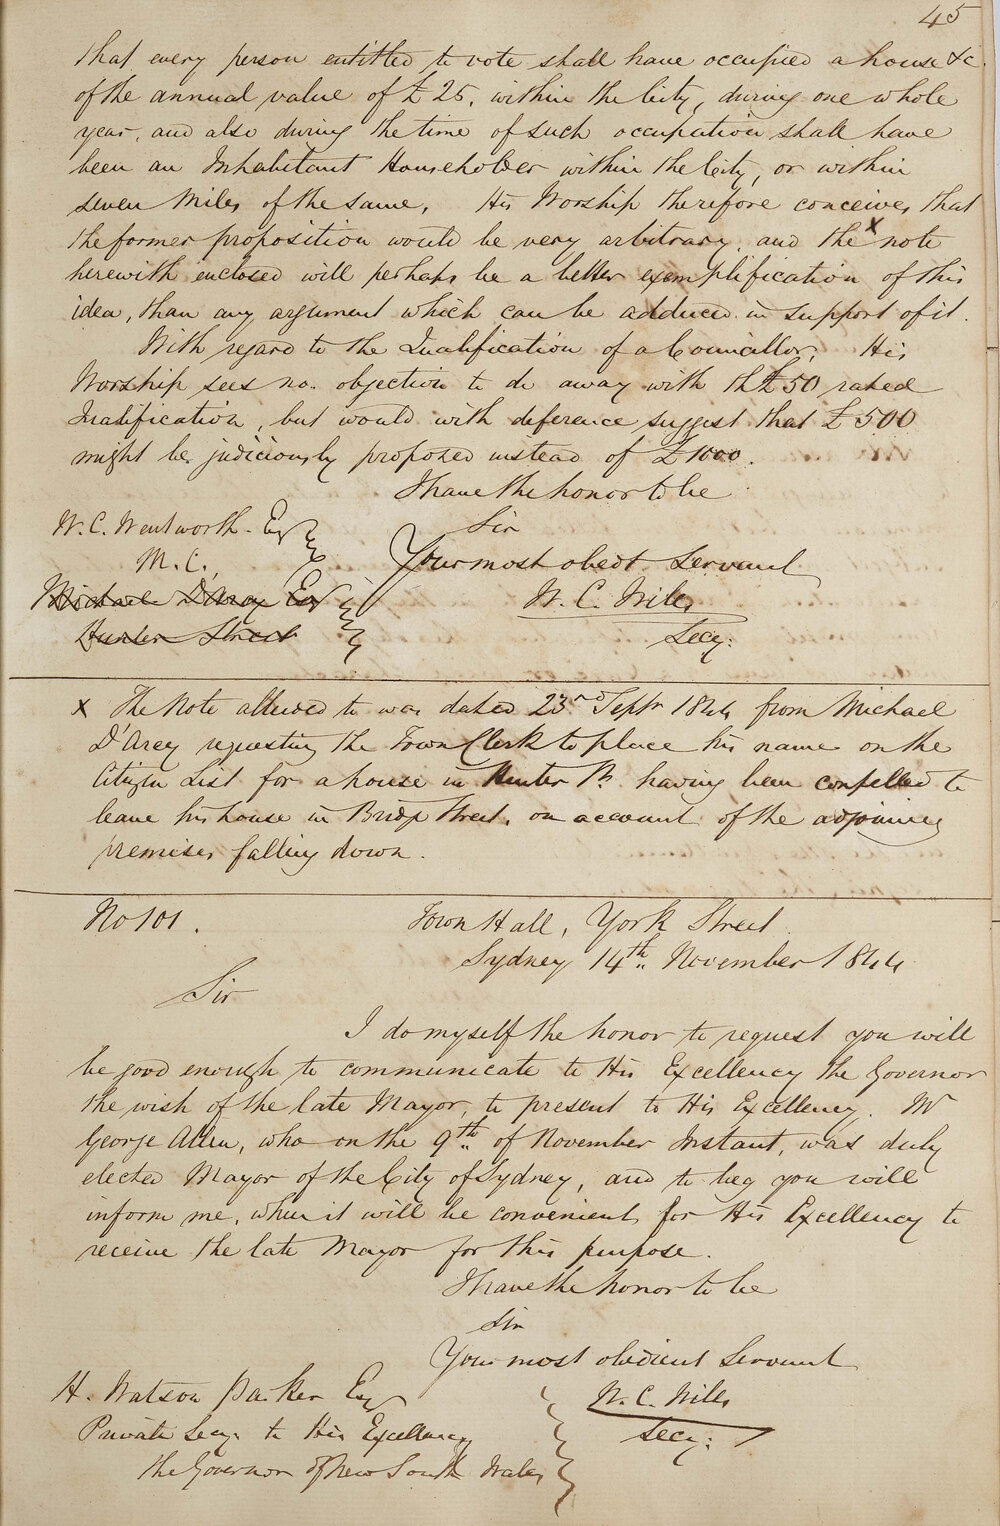 45
that every person entitled to vote shall have occupied a house &c.
of the annual value of £25, within the City, during one whole
year, and also during the time of such occupation shall have
been an Inhabitant Householder within the City, or within
seven Miles of the same. His Worship therefore conceives that
the former proposition would be very arbitrary, and the x note
herewith enclosed will perhaps be a better exemplification of this
idea, than any argument which can be adduced in support of it.
With regard to the Qualification of a Councillor, His
Worship sees no objection to do away with the £50 rated
Qualification, but would with deference suggest that £500
might be judiciously proposed instead of £1000.
I have the honor to be
Sir
Your most obedt Servant
W. C. Wills
Secy.
W. C. Wentworth Esq
M. C.,
Michael D'Arcy Esq
Hunter Street
x The Note alluded to was dated 23rd Septr 1844 from Michael
D'Arcy requesting the Town Clerk to place his name on the
Citizen List for a house in Hunter St. having been compelled to
leave his house in Bridge Street, on account of the adjoining
premises falling down.
No 101.
Town Hall, York Street
Sydney 14th November 1844
Sir
I do myself the honor to request you will
be good enough to communicate to His Excellency the Governor
the wish of the late Mayor, to present to His Excellency. Mr
George Allen, who on the 9th of November Instant, was duly
elected Mayor of the City of Sydney, and to beg you will
inform me, when it will be convenient for His Excellency to
receive the late Mayor for this purpose.
I have the honor to be
Sir
Your most obedient Servant
W. C. Wills
Secy:
H. Watson Parker Esq
Private Secy. to His Excellency
the Governor of New South Wales